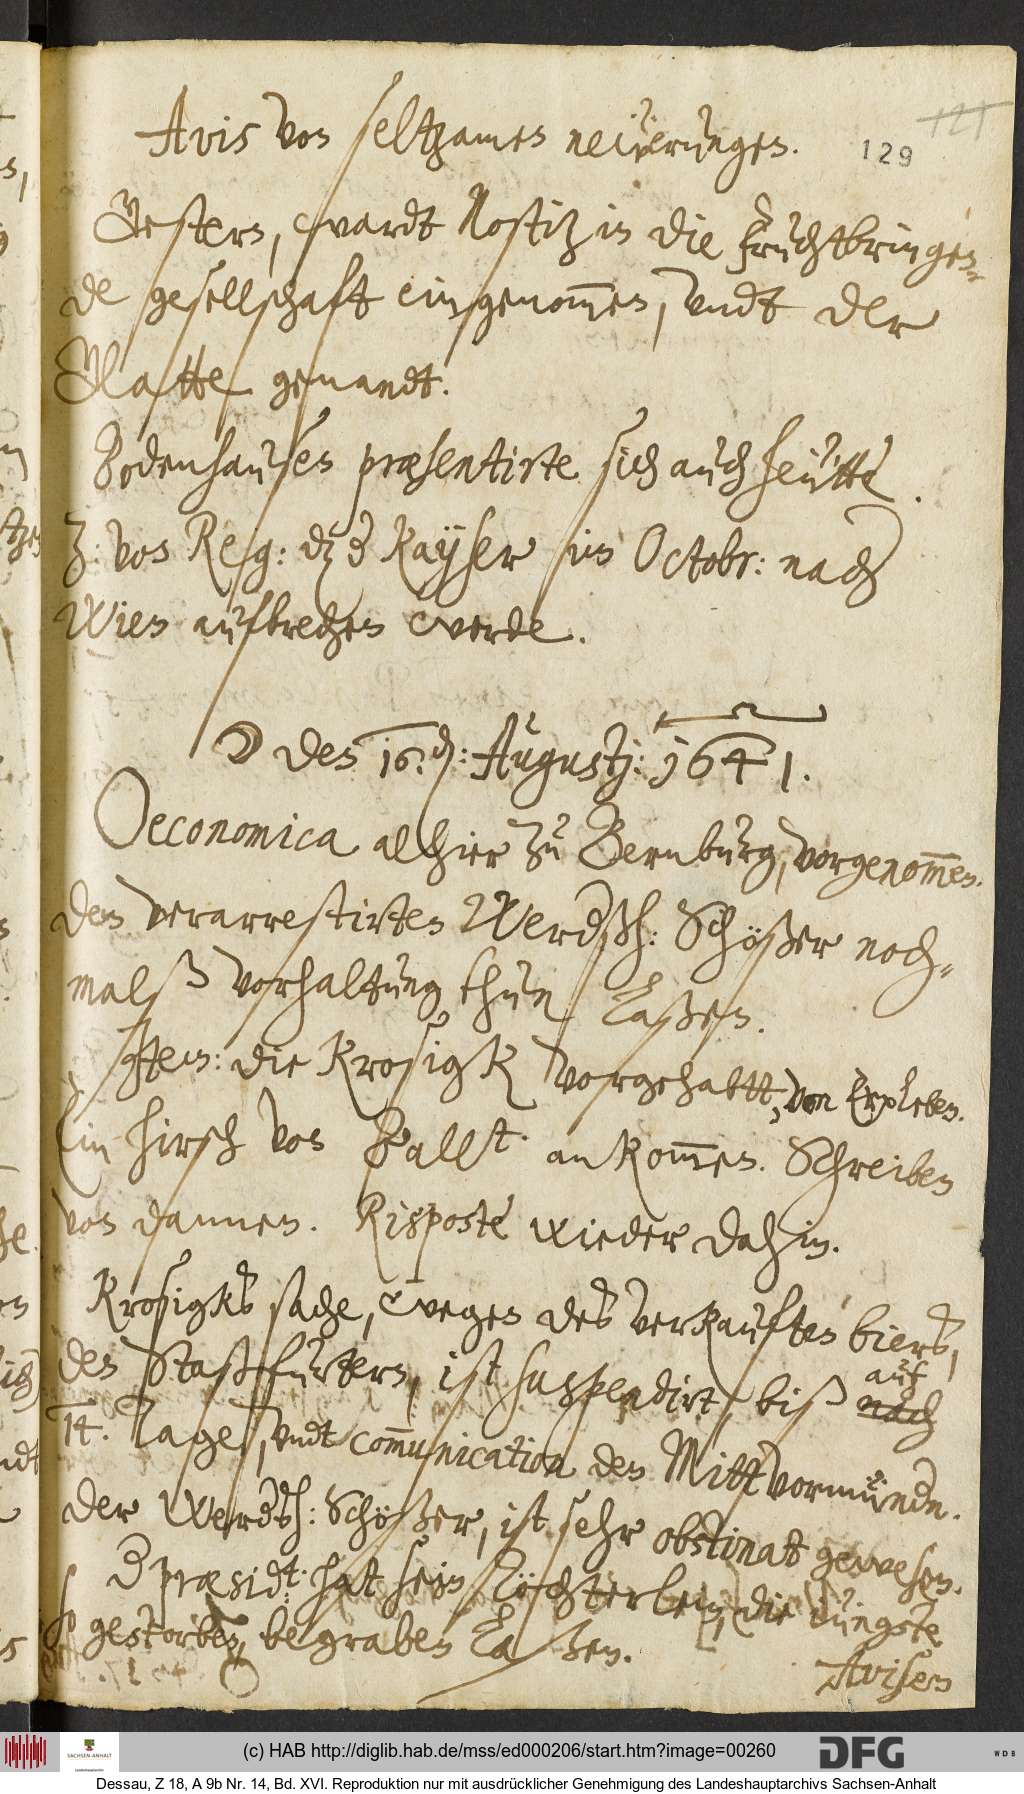 121
129
Avis von seltzamen neẅerungen.
Gestern, wardt Nostitz in die fruchtbringen-
de gesellschaft eingenom̅en, undt der
Glatte genandt.
Bodenhausen præsentirte sich auch heütte.
Z: von Reg: dz der Kayser im Octobr: nach
Wien aufbrechen werde.
☽ den 16.d: Augustj: 1641.
Oeconomica alhier zu Bernburg, vorgenom̅en.
Den verarrestirten Werdßh: Schößer noch-
malß vorhaltung thun laßen.
Jtem: die Krosigk vorgehabtt, von Erxleben.
Ein hirsch von Ballst. ankom̅en. Schreiben
von dannen. Risposte wieder dahin.
Krosigks sache, wegen des verkauften biers,
den Staßfurtern, ist suspendirt, biß auf
nach
14. Tage, undt com̅unication den Mittvormündn.
Der Werdßh: Schößer, ist sehr obstinat gewesen.
D præsidt: hat sein Töchterlein, die iüngste
so gestorben, begraben laßen.
Avisen
(c) HAB http://diglib.hab.de/mss/ed000206/start.htm?image=00260
SACHSEN-ANHALT
DFG
WDB
Dessau, Z 18, A 9b Nr. 14, Bd. XVI. Reproduktion nur mit ausdrücklicher Genehmigung des Landeshauptarchivs Sachsen-Anhalt